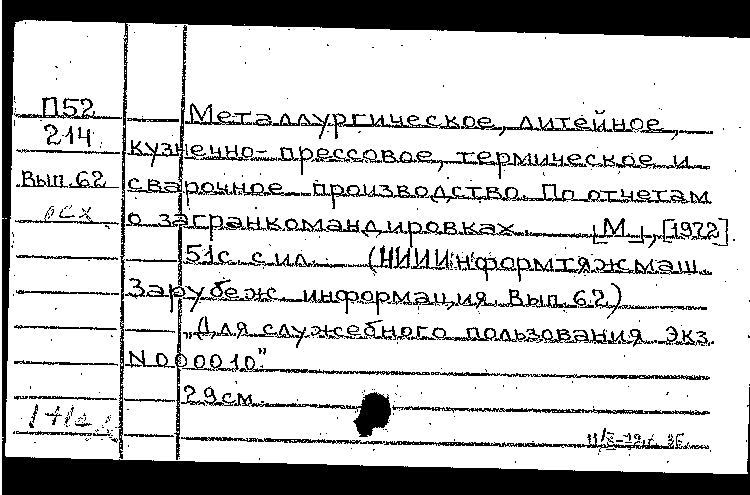 П52
214
Вып.62
осх
Металлургическое, литейное,
кузнечно-прессовое, термическое и
сварочное производство. По отчетам
о загранкомандировках. [М.], [1972].
51с. с ил. (НИИИнформтяжмаш.
Зарубеж. информация. Вып.62)
„Для служебного пользования Экз.
N000010".
29см.